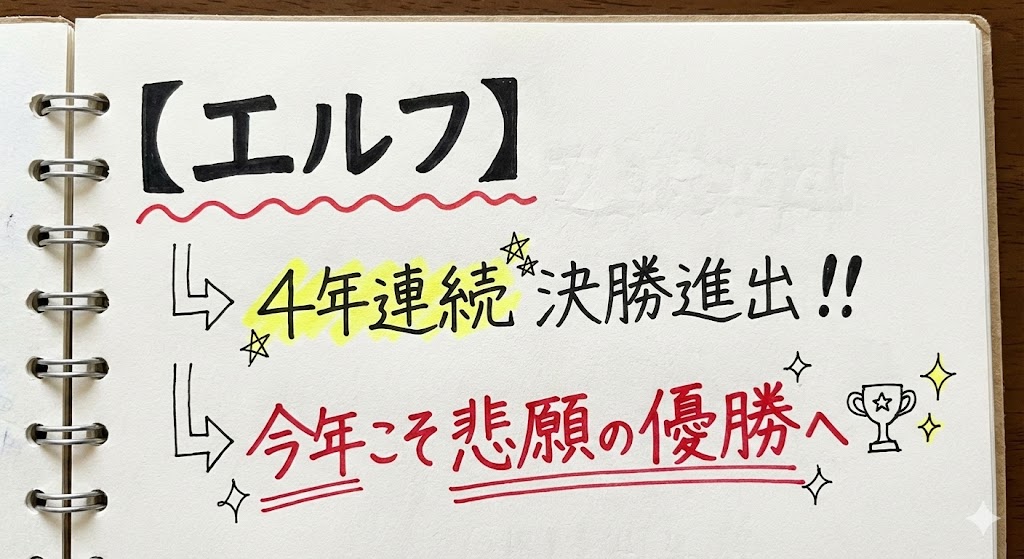 【エルフ】
4年連続 決勝進出!!
今年こそ悲願の優勝へ